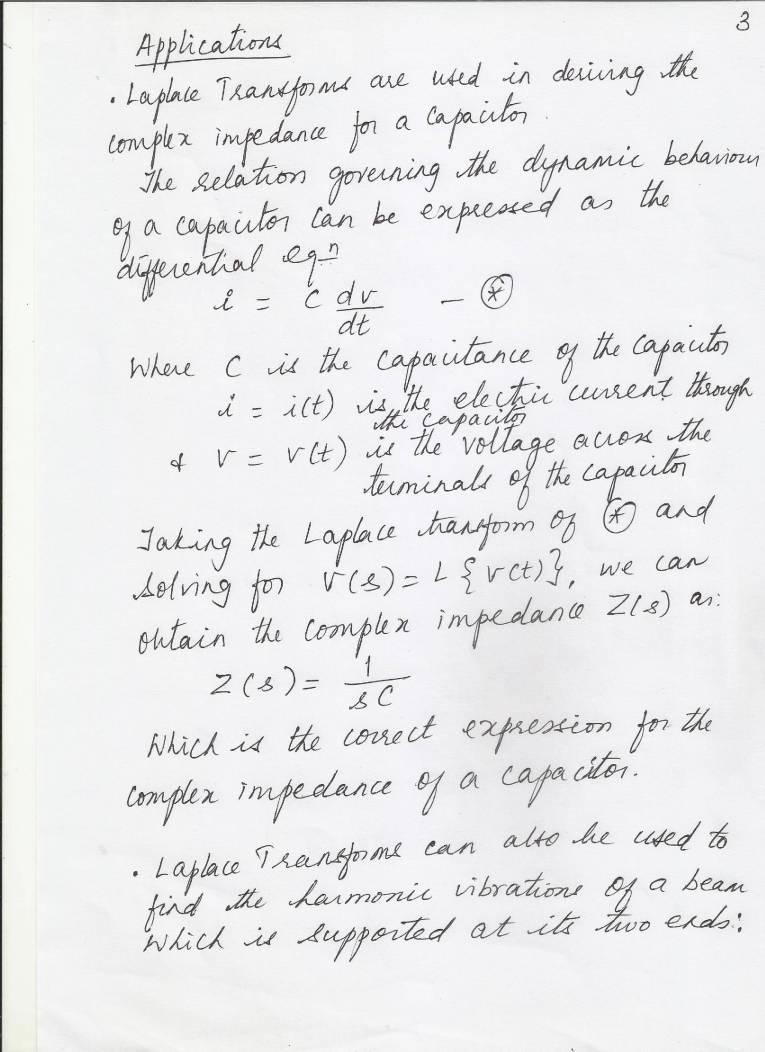 3
Applications
. Laplace Transforms are used in deriving the
complex impedance for a capacitor.
The relation governing the dynamic behaviour
of a capacitor can be expressed as the
differential eqn
i = C dv/dt - (*)
Where C is the capacitance of the capacitor
i = i(t) is the electric current through
the capacitor
& v = v(t) is the voltage across the
terminals of the capacitor
Taking the Laplace transform of (*) and
solving for V(s) = L {v(t)}, we can
obtain the complex impedance Z(s) as:
Z(s) = 1/sC
Which is the correct expression for the
complex impedance of a capacitor.
. Laplace Transforms can also be used to
find the harmonic vibrations of a beam
which is supported at its two ends: